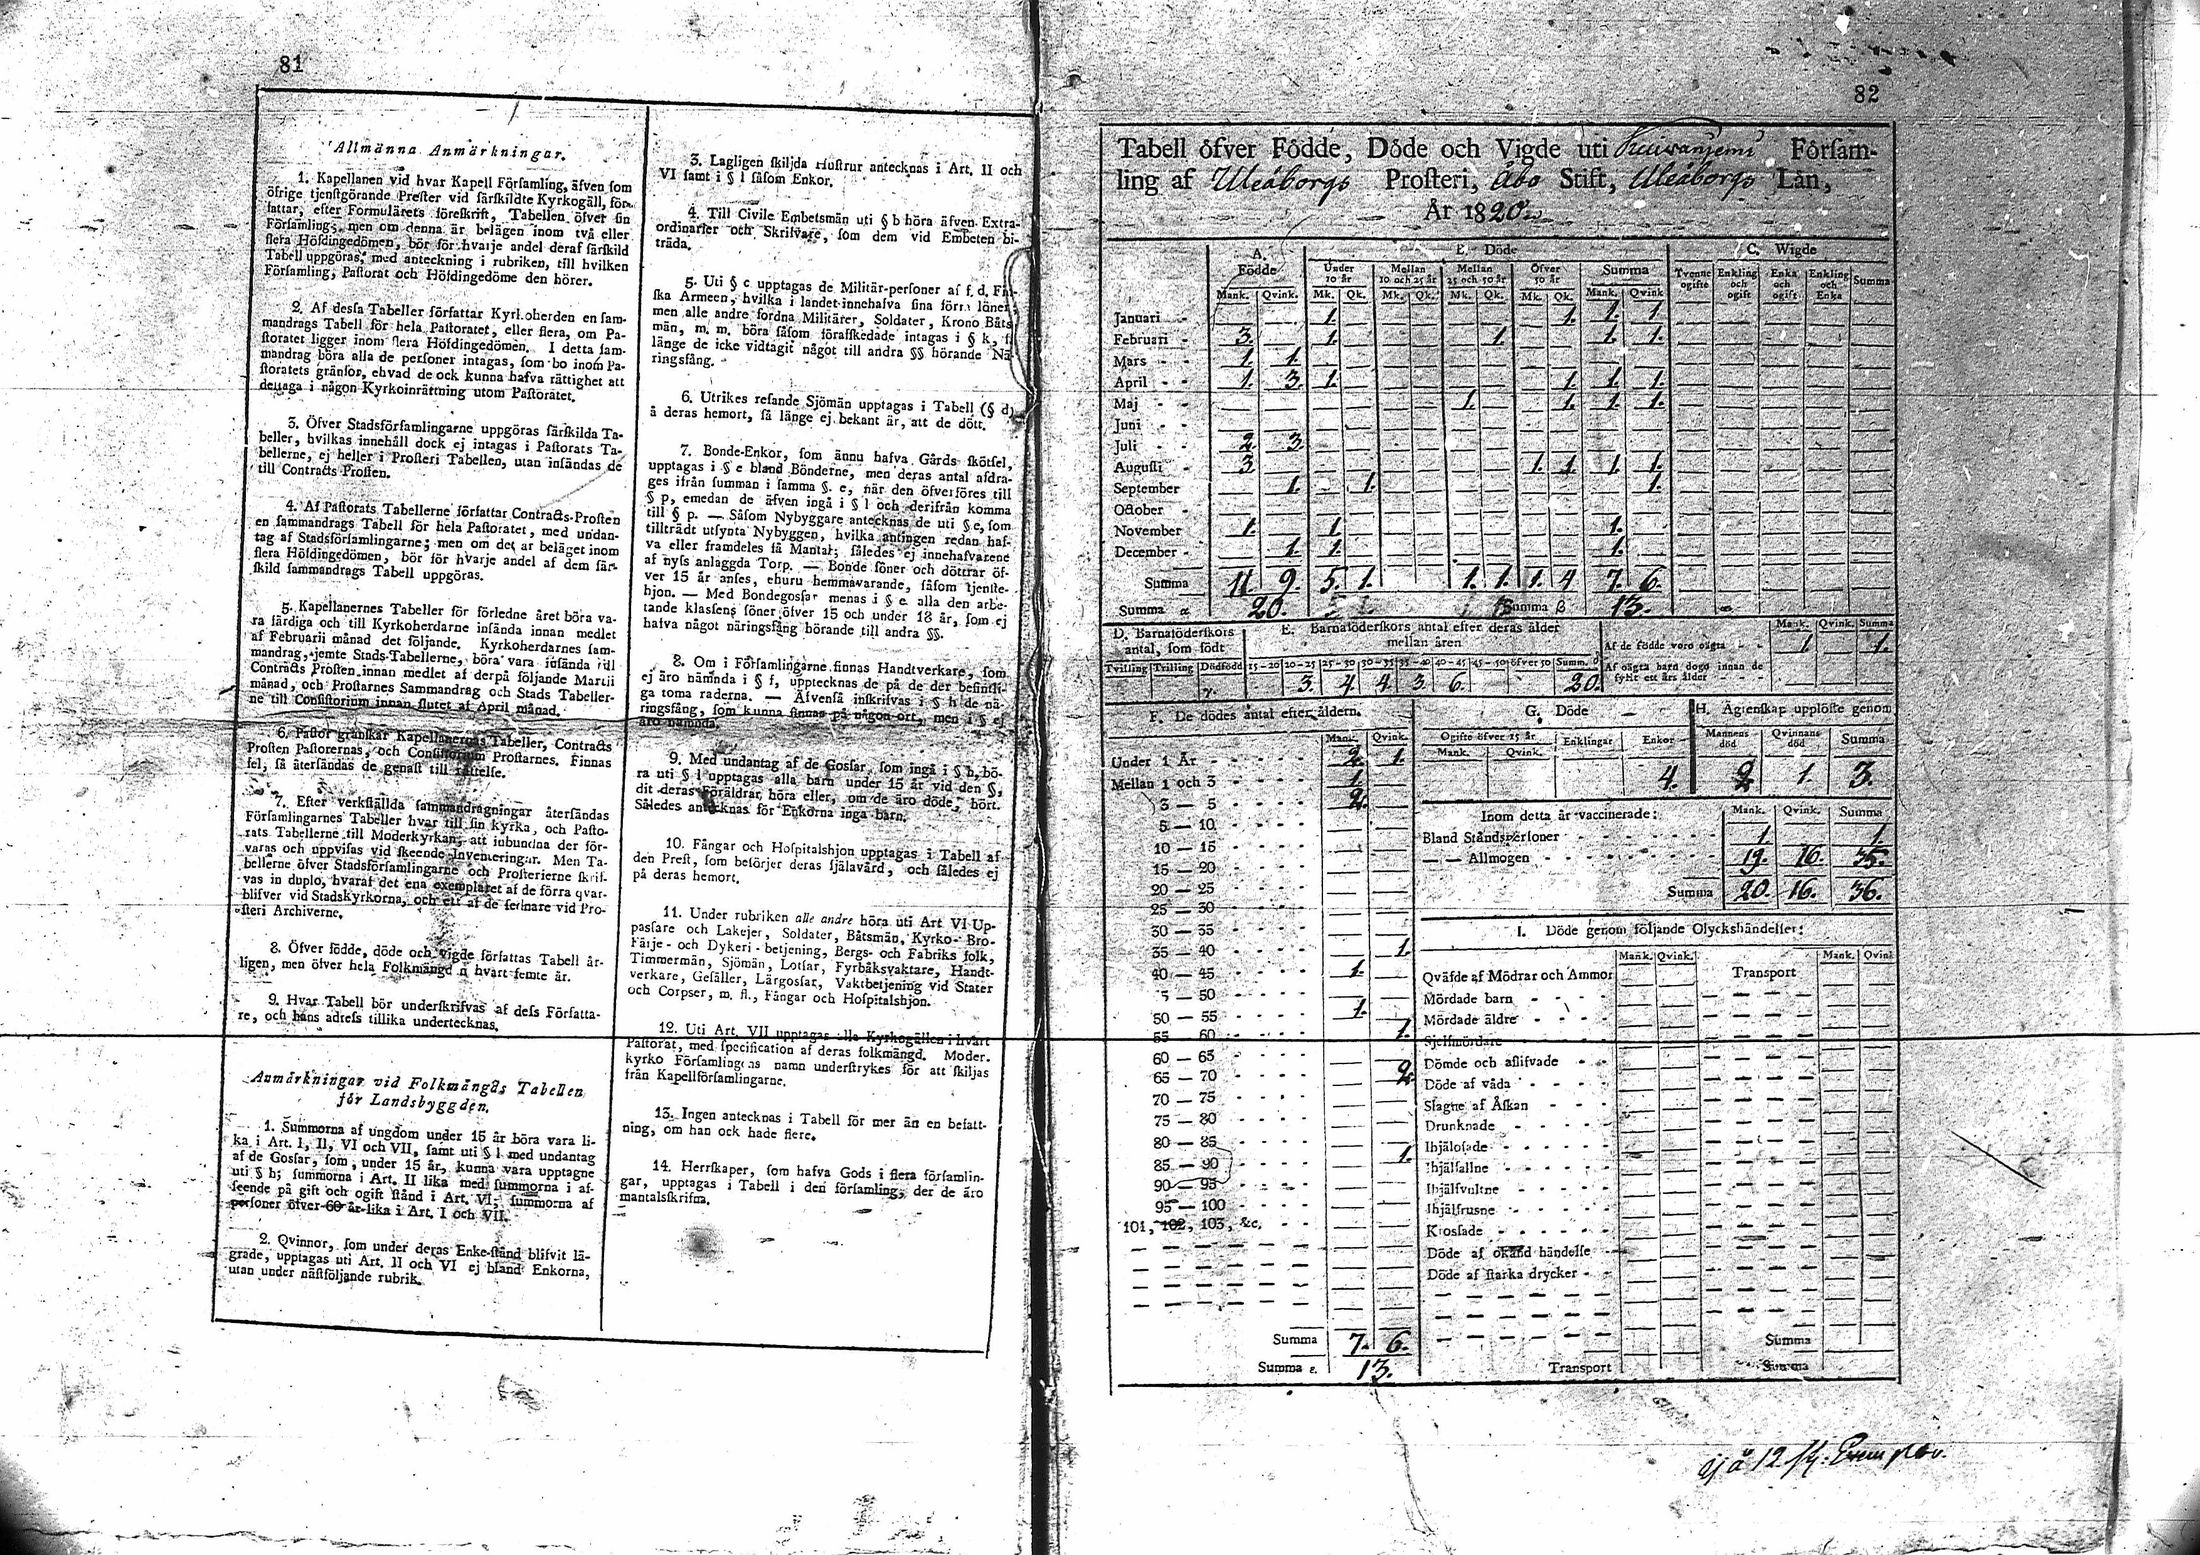 81
Allmänna Anmärkningar.
1. Kapellanen vid hvar Kapell Församling, äfven som
öfrige tjenstgörande Prester vid särskildte Kyrkogäll, för-
fattar, efter Formulärets föreskrift, Tabellen öfver sin
Församling; men om denna är belägen inom två eller
flera Höfdingedömen, bör för hvarje andel deraf särskild
Tabell uppgöras, med anteckning i rubriken, till hvilken
Församling, Pastorat och Höfdingedöme den hörer.
2. Af dessa Tabeller författar Kyrkoherden en sam-
mandrags Tabell för hela Pastoratet, eller flera, om Pa-
storatet ligger inom flera Höfdingedömen. I detta sam-
mandrag böra alla de personer intagas, som bo inom Pa-
storatets gränsor, ehvad de ock kunna hafva rättighet att
deltaga i någon Kyrkoinrättning utom Pastoratet.
3. Öfver Stadsförsamlingarne uppgöras särskilda Ta-
beller, hvilkas innehåll dock ej intagas i Pastorats Ta-
bellerne, ej heller i Prosteri Tabellen, utan insändas de
till Contracts Prosten.
4. Af Pastorats Tabellerne författar Contracts-Prosten
en sammandrags Tabell för hela Pastoratet, med undan-
tag af Stadsförsamlingarne; men om det är beläget inom
flera Höfdingedömen, bör för hvarje andel af dem sär-
skild sammandrags Tabell uppgöras.
5. Kapellanernes Tabeller för förledne året böra va-
ra färdiga och till Kyrkoherdarne insända innan medlet
af Februarii månad det följande. Kyrkoherdarnes sam-
mandrag, jemte Stads-Tabellerne, böra vara insända till
Contracts Prosten innan medlet af derpå följande Martii
månad, och Prostarnes Sammandrag och Stads Tabeller-
ne till Consistorium innan slutet af April månad.
6. Pastor granskar Kapellanernas Tabeller, Contracts
Prosten Pastorernas, och Consistorium Prostarnes. Finnas
fel, så återsändas de genast till rättelse.
7. Efter verkställda sammandragningar återsändas
Församlingarnes Tabeller hvar till sin kyrka, och Pasto-
rats Tabellerne till Moderkyrkan, att inbundna der för-
varas och uppvisas vid skeende Inventeringar. Men Ta-
bellerne öfver Stadsförsamlingarne och Prosterierne skrif-
vas in duplo, hvaraf det ena exemplaret af de förra qvar-
blifver vid Stadskyrkorna, och ett af de sednare vid Pro-
steri Archiverne.
8. Öfver födde, döde och vigde författas Tabell år-
ligen, men öfver hela Folkmängden hvart femte år.
9. Hvar Tabell bör underskrifvas af dess Författa-
re, och hans adress tillika undertecknas.
Anmärkningar vid Folkmängds Tabellen
för Landsbyggden.
1. Summorna af ungdom under 15 år böra vara li-
ka i Art. I, II, VI och VII, samt uti § l med undantag
af de Gossar, som, under 15 år, kunna vara upptagne
uti § h; summorna i Art. II lika med summorna i af-
seende på gift och ogift stånd i Art. VI; summorna af
personer öfver 60 år lika i Art. I och VII.
2. Qvinnor, som under deras Enke-stånd blifvit lä-
grade, upptagas uti Art. II och VI ej bland Enkorna,
utan under nästföljande rubrik.
3. Lagligen skiljda Hustrur antecknas i Art. II och
VI samt i § l såsom Enkor.
4. Till Civile Embetsmän uti § b höra äfven Extra-
ordinarier och Skrifvare, som dem vid Embeten bi-
träda.
5. Uti § c upptagas de Militär-personer af f. d. Fin-
ska Armeen, hvilka i landet innehafva sina förra löner,
men alle andre fordna Militärer, Soldater, Krono Båts-
män, m. m. böra såsom förafskedade intagas i § k, så
länge de icke vidtagit något till andra §§ hörande Nä-
ringsfång.
6. Utrikes resande Sjömän upptagas i Tabell (§ d)
å deras hemort, så länge ej bekant är, att de dött.
7. Bonde-Enkor, som ännu hafva Gårds skötsel,
upptagas i § e bland Bönderne, men deras antal afdra-
ges ifrån summan i samma §. e, när den öfverföres till
§ p, emedan de äfven ingå i § l och derifrån komma
till § p. — Såsom Nybyggare antecknas de uti § e, som
tillträdt utsynta Nybyggen, hvilka antingen redan haf-
va eller framdeles få Mantal; således ej innehafvarene
af nyss anlaggda Torp. — Bonde söner och döttrar öf-
ver 15 år anses, ehuru hemmavarande, såsom tjenste-
hjon. — Med Bondegossar menas i § e alla den arbe-
tande klassens söner öfver 15 och under 18 år, som ej
hafva något näringsfång hörande till andra §§.
8. Om i Församlingarne finnas Handtverkare, som
ej äro nämnda i § f, upptecknas de på de der befintli-
ga toma raderna. — Äfvenså inskrifvas i § h de nä-
ringsfång, som kunna finnas på någon ort, men i § ej
äro nämnda.
9. Med undantag af de Gossar, som ingå i § h, bö-
ra uti § l upptagas alla barn under 15 år vid den §,
dit deras Föräldrar höra eller, om de äro döde, hört.
Således antecknas för Enkorna inga barn.
10. Fångar och Hospitalshjon upptagas i Tabell af
den Prest, som besörjer deras själavård, och således ej
på deras hemort.
11. Under rubriken alle andre höra uti Art VI Up-
passare och Lakejer, Soldater, Båtsmän, Kyrko- Bro-
Färje- och Dykeri-betjening, Bergs- och Fabriks folk,
Timmermän, Sjömän, Lotsar, Fyrbåksvaktare, Handt-
verkare, Gesäller, Lärgossar, Vaktbetjening vid Stater
och Corpser, m. fl., Fångar och Hospitalshjon.
12. Uti Art. VII upptagas alla Kyrkogällen i hvart
Pastorat, med specification af deras folkmängd. Moder-
kyrko Församlingens namn understrykes för att skiljas
från Kapellförsamlingarne.
13. Ingen antecknas i Tabell för mer än en befatt-
ning, om han ock hade flere.
14. Herrskaper, som hafva Gods i flera församlin-
gar, upptagas i Tabell i den församling, der de äro
mantalsskrifna.
82
Tabell öfver Födde, Döde och Vigde uti Kuivaniemi Församling
ling af Uleåborgs Prosteri, Åbo Stift, Uleåborgs Län,
År 1820
A. Födde B. Döde C. Wigde
Under 10 år Mellan 10 och 25 år Mellan 25 och 50 år Öfver 50 år Summa Tvenne ogifte Enkling och ogift Enka och ogift Enkling och Enka Summa
Mank. Qvink. Mk. Qk. Mk. Qk. Mk. Qk. Mk. Qk. Mank. Qvink
Januari 1. 1. 1. 1.
Februari 3. 1. 1. 1. 1.
Mars 1. 1.
April 1. 3. 1. 1. 1. 1.
Maj 1. 1. 1. 1.
Juni
Juli 2. 3.
Augusti 3 1. 1. 1. 1.
September 1. 1. 1.
October
November 1. 1. 1.
December 1. 1. 1.
Summa 11. 9. 5. 1. 1. 1. 1. 4 7. 6.
Summa α 20. Summa ß 13.
D. Barnaföderskors antal, som födt
Tvilling Trilling Dödfödd
E. Barnaföderskors antal efter deras ålder mellan åren
15–20 20–25 25–30 30–35 35–40 40–45 45–50 öfver 50 Summ.
3. 4. 4. 3. 6. 20.
Mank. Qvink. Summa
Af de födde voro oägta 1 1.
Af oägta barn dogo innan de fyllt ett års ålder
F. De dödes antal efter åldern.
Mank. Qvink.
Under 1 År 2. 1.
Mellan 1 och 3 1.
3 — 5 2.
5 — 10
10 — 15
15 — 20
20 — 25
25 — 30
30 — 35
35 — 40 1.
40 — 45 1.
5 — 50
50 — 55 1.
55 60 1.
60 — 65
65 — 70 2.
70 — 75
75 — 80
80 — 85
85 — 90 1.
90 — 95
95 — 100
101, 102, 103, &c.
Summa 7. 6.
Summa ε. 13.
G. Döde
Ogifte öfver 15 år Enklingar Enkor
Mank. Qvink.
4.
H. Ägtenskap upplöste genom
Mannens död Qvinnans död Summa
2 1. 3.
Inom detta år vaccinerade: Mank. Qvink. Summa
Bland Ståndspersoner 1. 1.
— — Allmogen 19. 16. 35.
Summa 20. 16. 36.
I. Döde genom följande Olyckshändelser:
Mank. Qvink. Mank. Qvink
Qväfde af Mödrar och Ammor Transport
Mördade barn
Mördade äldre
Sjelfmördare
Dömde och aflifvade
Döde af våda
Slagne af Åskan
Drunknade
Ihjälosade
Ihjälfallne
Ihjälsvultne
Ihjälfrusne
Krossade
Döde af okänd händelse
Döde af starka drycker
Summa
Transport Summa
à 12